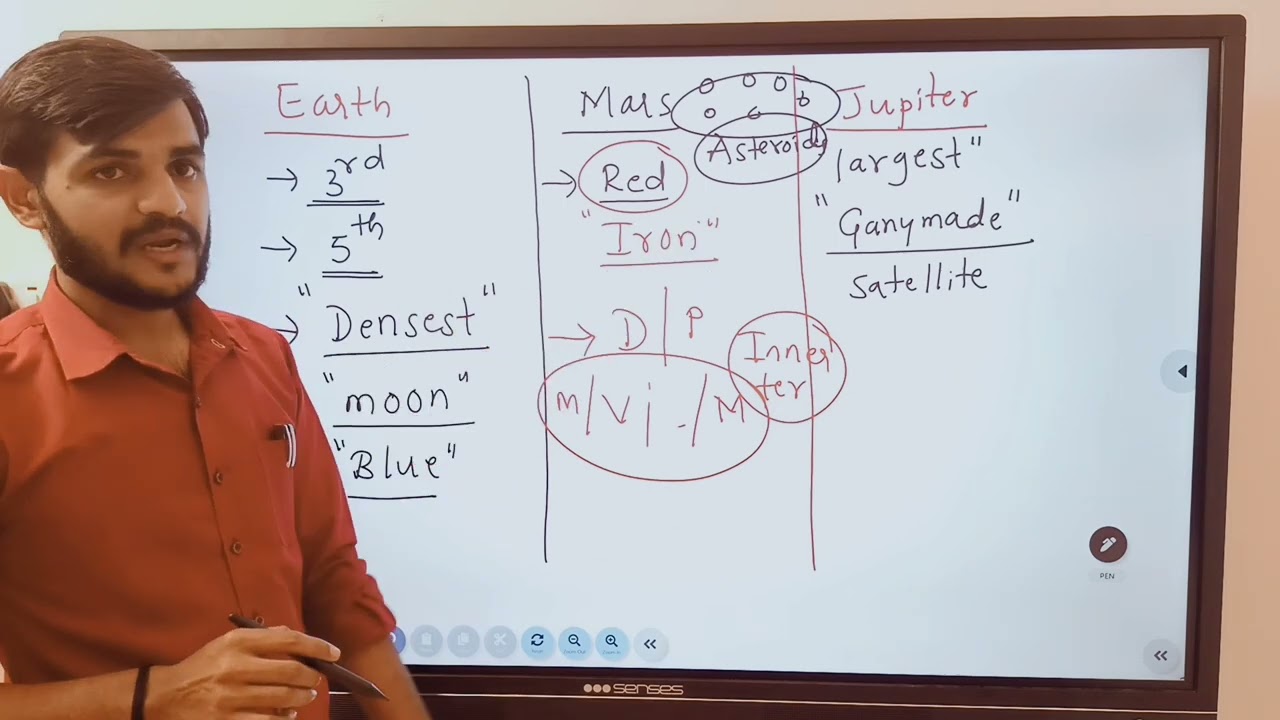 Earth
→ 3rd
→ 5th
→ "Densest"
"moon"
"Blue"
Mars
Asteroids
→ Red
"Iron"
→ D | P
m / V | . / M
Inner
ter
Jupiter
largest"
"Ganymade"
satellite
PEN
Zoom Out
Zoom In
senses